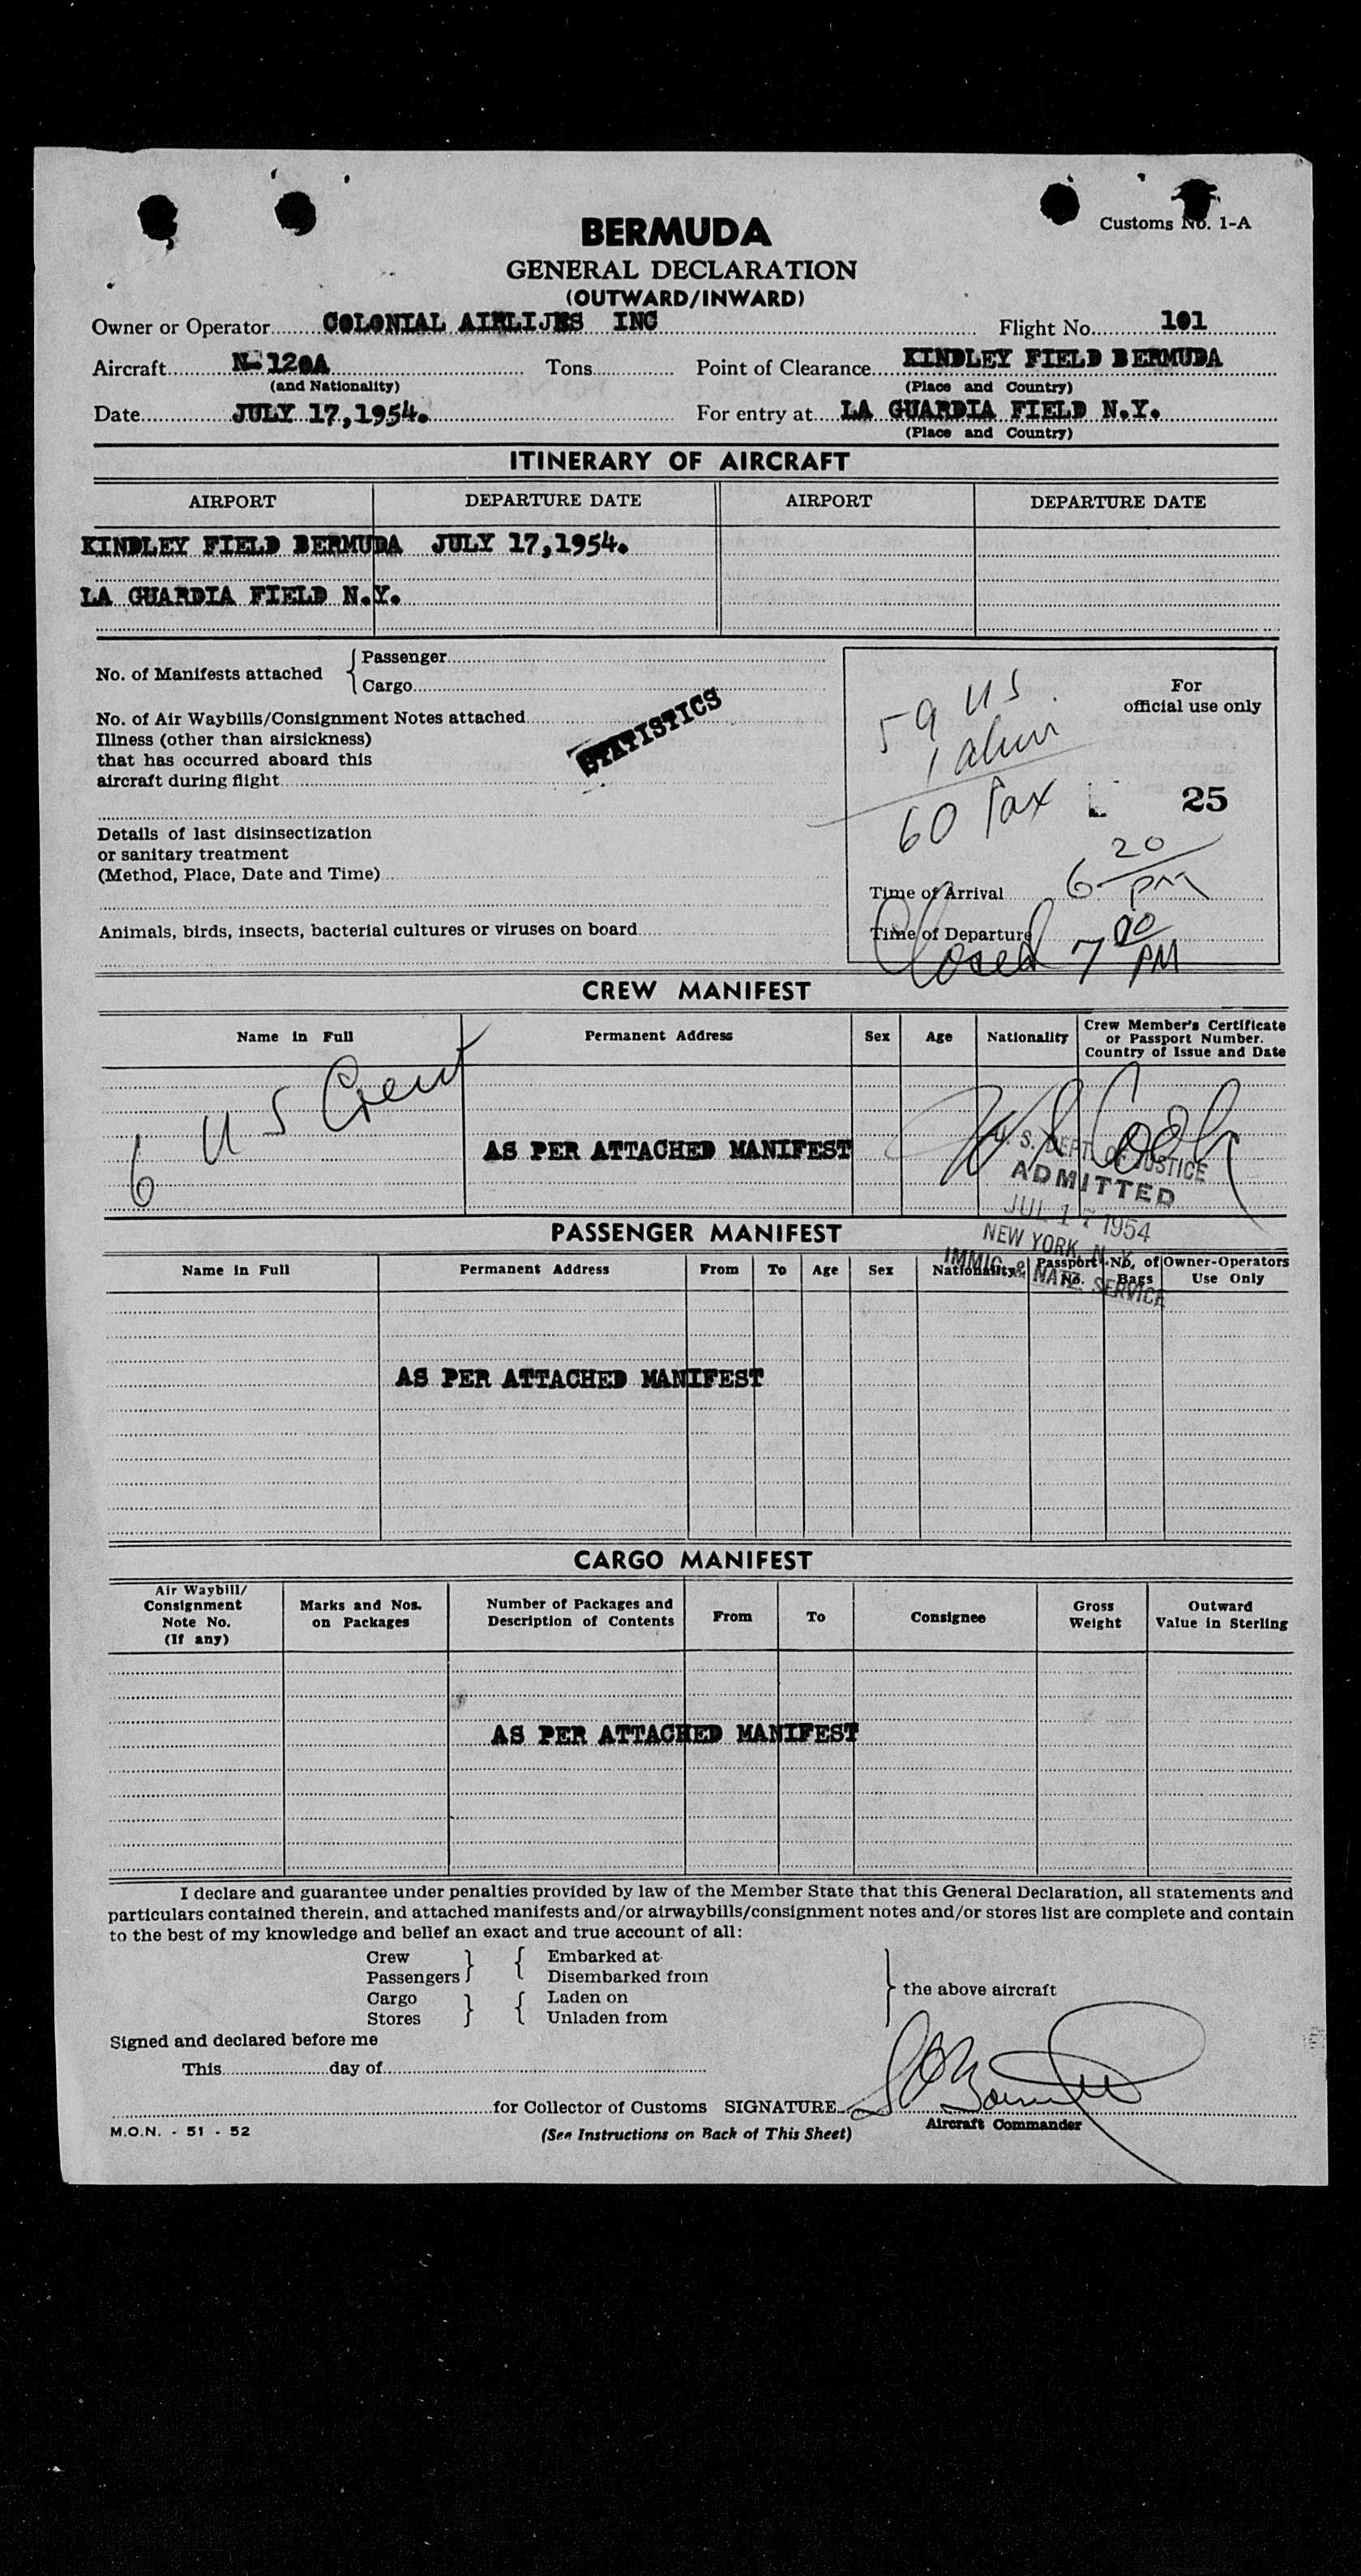 Customs No. 1-A
BERMUDA
GENERAL DECLARATION
(OUTWARD/INWARD)
Owner or Operator COLONIAL AIRLIJNS INC Flight No. 101
Aircraft N-120A Tons Point of Clearance KINDLEY FIELD BERMUDA
(and Nationality) (Place and Country)
Date JULY 17,1954. For entry at LA GUARDIA FIELD N.Y.
(Place and Country)
ITINERARY OF AIRCRAFT
AIRPORT DEPARTURE DATE AIRPORT DEPARTURE DATE
KINDLEY FIELD BERMUDA JULY 17,1954.
LA GUARDIA FIELD N.Y.
No. of Manifests attached { Passenger
Cargo
No. of Air Waybills/Consignment Notes attached
STATISTICS
Illness (other than airsickness)
that has occurred aboard this
aircraft during flight
Details of last disinsectization
or sanitary treatment
(Method, Place, Date and Time)
Animals, birds, insects, bacterial cultures or viruses on board
For
official use only
59 US
1 alien
60 Pax
25
Time of Arrival 6 20 PM
Time of Departure
Closed 7 00 PM
CREW MANIFEST
Name in Full Permanent Address Sex Age Nationality Crew Member's Certificate
or Passport Number.
Country of Issue and Date
6 US Crew
AS PER ATTACHED MANIFEST
U. S. DEPT. OF JUSTICE
ADMITTED
JUL 17 1954
NEW YORK, N. Y.
IMMIG. & NATZ. SERVICE
PASSENGER MANIFEST
Name in Full Permanent Address From To Age Sex Nationality Passport No. No. of Bags Owner-Operators Use Only
AS PER ATTACHED MANIFEST
CARGO MANIFEST
Air Waybill/
Consignment
Note No.
(If any)
Marks and Nos.
on Packages
Number of Packages and
Description of Contents
From To Consignee
Gross
Weight
Outward
Value in Sterling
AS PER ATTACHED MANIFEST
I declare and guarantee under penalties provided by law of the Member State that this General Declaration, all statements and
particulars contained therein, and attached manifests and/or airwaybills/consignment notes and/or stores list are complete and contain
to the best of my knowledge and belief an exact and true account of all:
Crew } { Embarked at
Passengers Disembarked from
} the above aircraft
Cargo } { Laden on
Stores Unladen from
Signed and declared before me
This day of
for Collector of Customs SIGNATURE
Aircraft Commander
M.O.N. - 51 - 52 (See Instructions on Back of This Sheet)